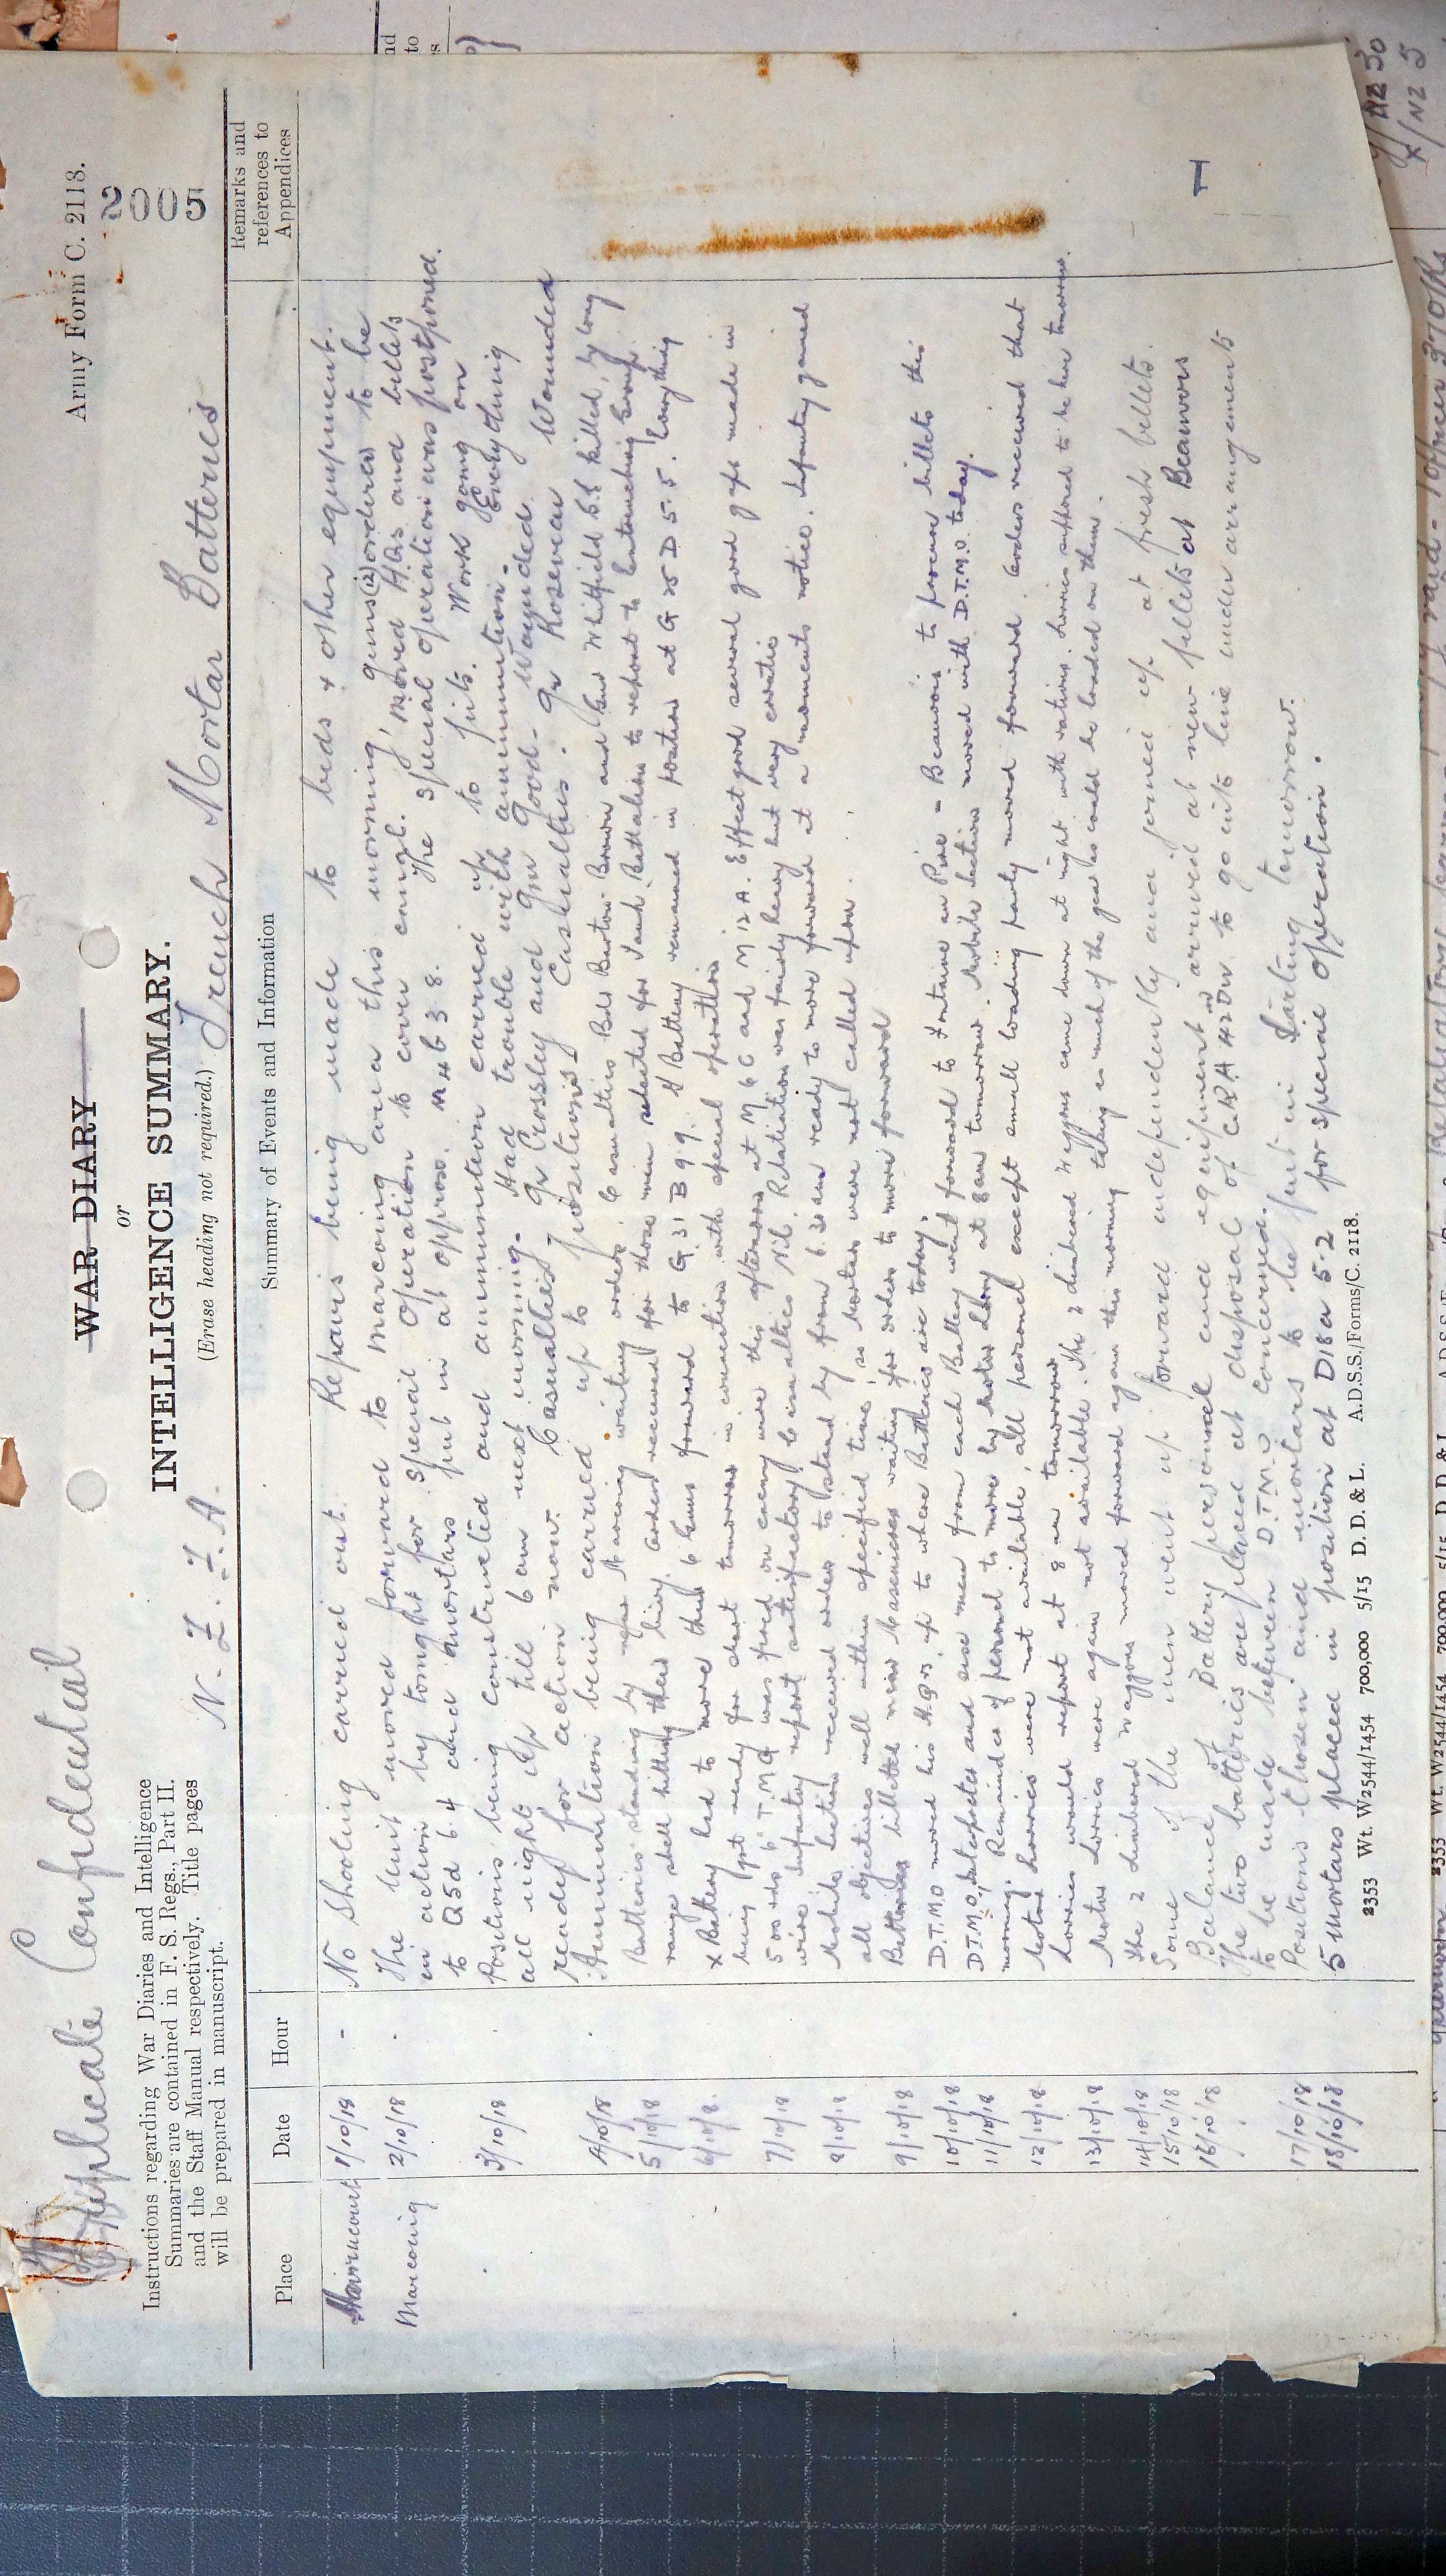 Duplicate Confidential
Army Form C. 2118.
2005
WAR DIARY
or
INTELLIGENCE SUMMARY.
(Erase heading not required.)
Instructions regarding War Diaries and Intelligence
Summaries are contained in F. S. Regs., Part II.
and the Staff Manual respectively. Title pages
will be prepared in manuscript.
N. Z. F. A. Trench Mortar Batteries
Place Date Hour Summary of Events and Information Remarks and references to Appendices
1/10/18 - No shooting carried out. Repairs being made to beds & other equipment.
Marcoing 2/10/18 The Unit moved forward to Marcoing area this morning, guns (12) ordered to be
in action by tonight for special operation to cover canal. Moved H.Qs and billets
to Q5d 6.4 and mortars put in at approx. M4b 3.8. The special operation was postponed.
3/10/18 Positions being constructed and ammunition carried up to pits. Work going on
all night up till 6 am next morning. Had trouble with ammunition. Everything
ready for action now. Casualties Gr Crossley and Gnr Good- Wounded.
4/10/18 Ammunition being carried up to positions. Casualties. Gr Rosevear Wounded
5/10/18 Batteries standing by near Marcoing waiting orders. Casualties Bdr Burton-Brown and Gnr Whitfield G.S killed, by long
range shell hitting their bivvy. Orders received for those men selected for Tank Battalion to report to Entrenching Group.
6/10/18 X Battery had to move their 6 Guns forward to G 31 B 9.9. Y Battery remained in position at G 25 D 5.5. Everything
being got ready for shoot tomorrow in connection with special operation
7/10/18 500 rds 6" T.M.A was fired on enemy wire this afternoon at M 6 C and M 12 A. Effect good several good gaps made in
wire, infantry report satisfactory. Casualties Nil. Retaliation was fairly heavy but very erratic
8/10/18 Mobile section received orders to stand by from 6.30 am ready to move forward at a moments notice. Infantry gained
all objectives well within specified time, so Mortars were not called upon.
9/10/18 Batteries billetted near Masnieres waiting for orders to move forward
10/10/18 D.T.M.O moved his H.Qrs. up to where Batteries are today.
11/10/18 D.T.M.O, interpreter and six men from each Battery went forward to Fontaine au Pire - Beauvois to procure billets this
morning. Remainder of personnel to move by Motor Lorry at 8 am tomorrow. Mobile Section moved with D.T.M.O. today.
12/10/18 Motor Lorries were not available, all personnel except small loading party moved forward. Orders received that
Lorries would report at 8 am tomorrow. The 2 limbered waggons came down at night with rations. Lorries supposed to be here tomorrow.
13/10/18 Motor Lorries were again not available.
14/10/18 The 2 limbered waggons moved forward again this morning taking as much of the gear as could be loaded on them.
15/10/18 Some of the men went up forward independently and joined up at fresh billets.
16/10/18 Balance of Battery personnel and equipment arrived at new billets at Beauvois
The two batteries are placed at disposal of C.R.A 42nd Div. to go into line under arrangements
to be made between D.T.M.O concerned.
17/10/18 Positions chosen and mortars to be put in starting tomorrow.
18/10/18 5 mortars placed in position at D18a 5.2 for special operation.
2353 Wt. W2544/1454 700,000 5/15 D. D. & L. A.D.S.S./Forms/C. 2118.